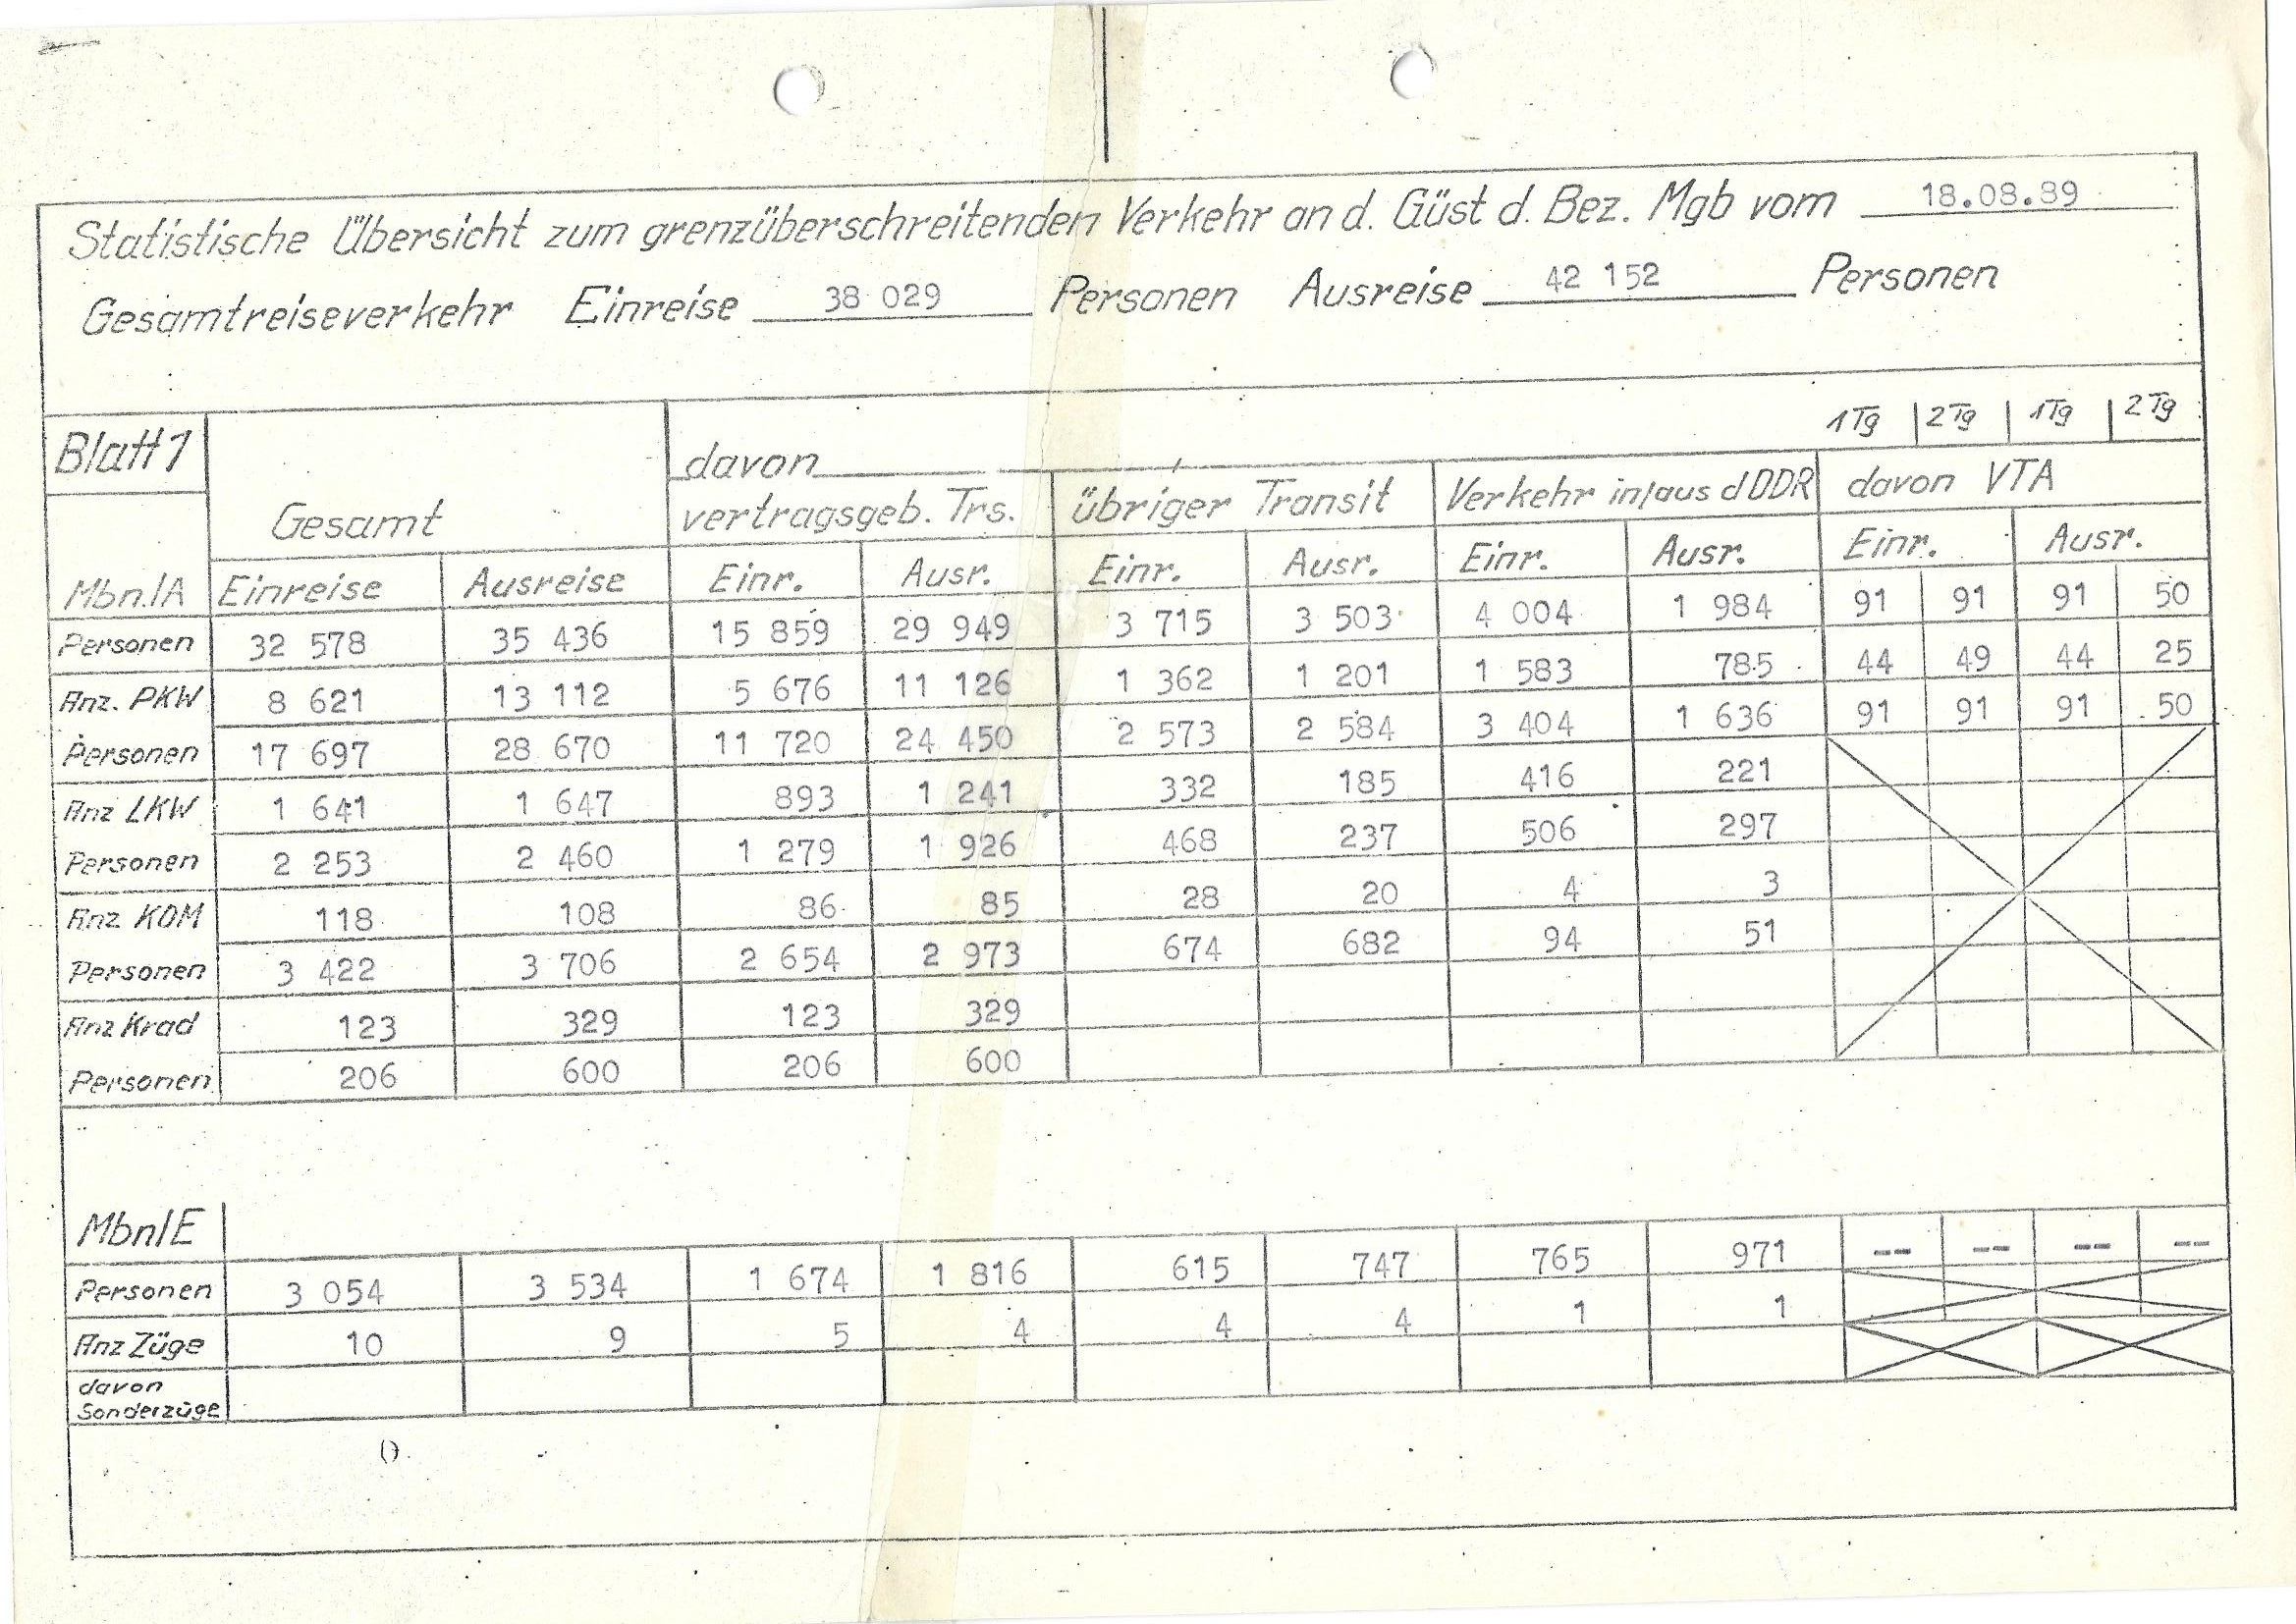 Statistische Übersicht zum grenzüberschreitenden Verkehr an d. Güst d. Bez. Mgb vom 18.08.89
Gesamtreiseverkehr Einreise 38 029 Personen Ausreise 42 152 Personen
1Tg | 2Tg | 1Tg | 2Tg
Blatt 1 davon
Gesamt vertragsgeb. Trs. übriger Transit Verkehr in/aus d DDR davon VTA
Mbn./A Einreise Ausreise Einr. Ausr. Einr. Ausr. Einr. Ausr. Einr. Ausr.
Personen 32 578 35 436 15 859 29 949 3 715 3 503 4 004 1 984 91 91 91 50
Anz. PKW 8 621 13 112 5 676 11 126 1 362 1 201 1 583 785 44 49 44 25
Personen 17 697 28 670 11 720 24 450 2 573 2 584 3 404 1 636 91 91 91 50
Anz LKW 1 641 1 647 893 1 241 332 185 416 221
Personen 2 253 2 460 1 279 1 926 468 237 506 297
Anz KOM 118 108 86 85 28 20 4 3
Personen 3 422 3 706 2 654 2 973 674 682 94 51
Anz Krad 123 329 123 329
Personen 206 600 206 600
Mbn/E
Personen 3 054 3 534 1 674 1 816 615 747 765 971 -- -- -- --
Anz Züge 10 9 5 4 4 4 1 1
davon
Sonderzüge